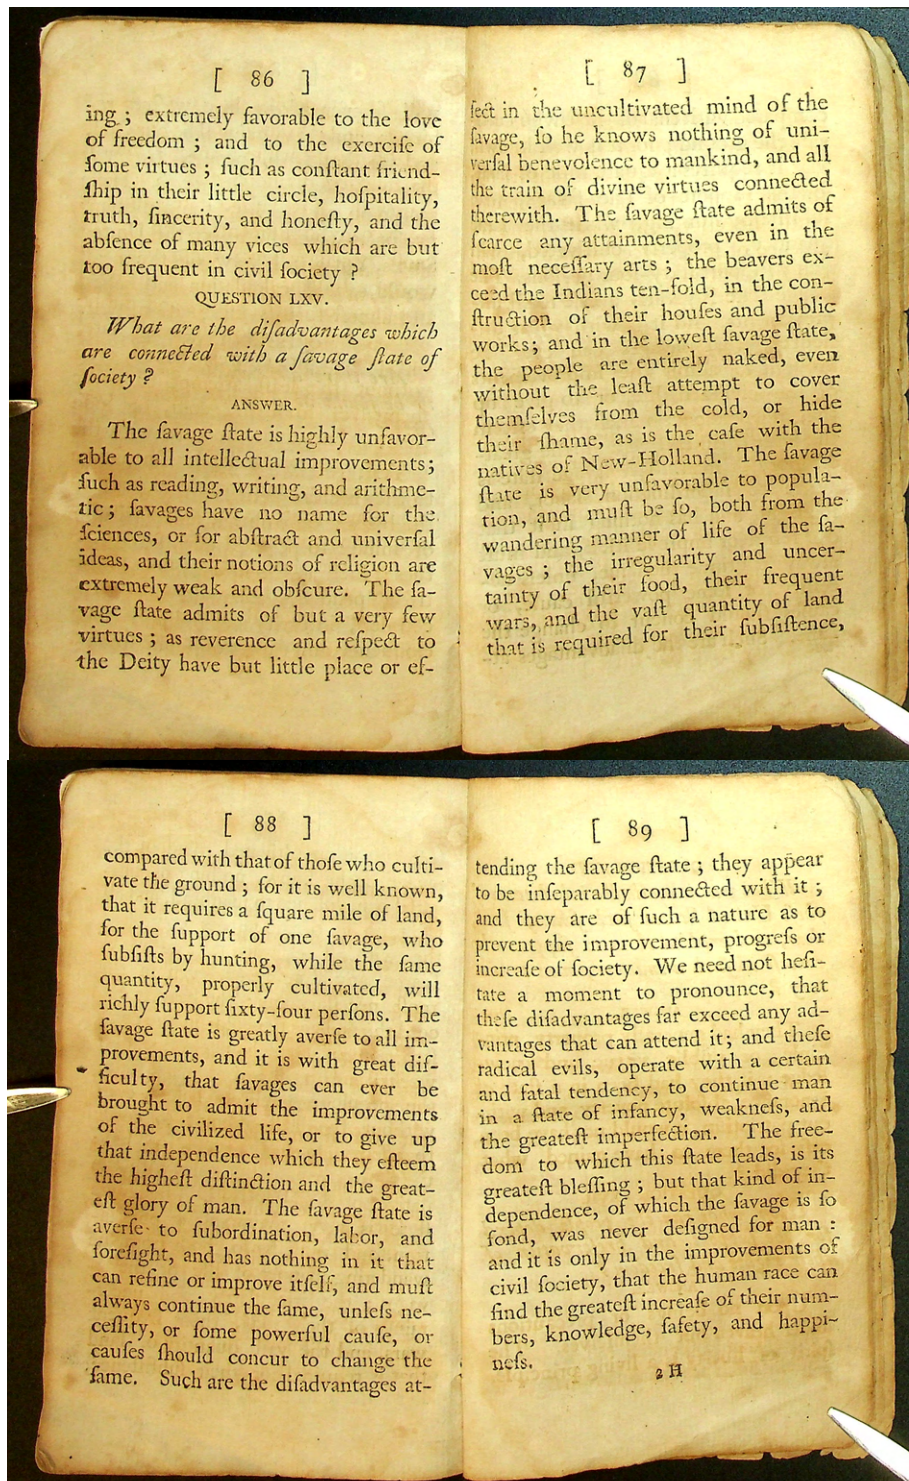 [ 86 ]
ing ; extremely favorable to the love
of freedom ; and to the exerciſe of
ſome virtues ; ſuch as conſtant friend-
ſhip in their little circle, hoſpitality,
truth, ſincerity, and honeſty, and the
abſence of many vices which are but
too frequent in civil ſociety ?
QUESTION LXV.
What are the diſadvantages which
are connected with a ſavage ſtate of
ſociety ?
ANSWER.
The ſavage ſtate is highly unfavor-
able to all intellectual improvements;
ſuch as reading, writing, and arithme-
tic ; ſavages have no name for the
ſciences, or for abſtract and univerſal
ideas, and their notions of religion are
extremely weak and obſcure. The ſa-
vage ſtate admits of but a very few
virtues ; as reverence and reſpect to
the Deity have but little place or ef-
[ 87 ]
fect in the uncultivated mind of the
ſavage, ſo he knows nothing of uni-
verſal benevolence to mankind, and all
the train of divine virtues connected
therewith. The ſavage ſtate admits of
ſcarce any attainments, even in the
moſt neceſſary arts ; the beavers ex-
ceed the Indians ten-fold, in the con-
ſtruction of their houſes and public
works; and in the loweſt ſavage ſtate,
the people are entirely naked, even
without the leaſt attempt to cover
themſelves from the cold, or hide
their ſhame, as is the caſe with the
natives of New-Holland. The ſavage
ſtate is very unfavorable to popula-
tion, and muſt be ſo, both from the
wandering manner of life of the ſa-
vages ; the irregularity and uncer-
tainty of their food, their frequent
wars, and the vaſt quantity of land
that is required for their ſubſiſtence,
[ 88 ]
compared with that of thoſe who culti-
vate the ground ; for it is well known,
that it requires a ſquare mile of land,
for the ſupport of one ſavage, who
ſubſiſts by hunting, while the ſame
quantity, properly cultivated, will
richly ſupport ſixty-four perſons. The
ſavage ſtate is greatly averſe to all im-
provements, and it is with great dif-
ficulty, that ſavages can ever be
brought to admit the improvements
of the civilized life, or to give up
that independence which they eſteem
the higheſt diſtinction and the great-
eſt glory of man. The ſavage ſtate is
averſe to ſubordination, labor, and
foreſight, and has nothing in it that
can refine or improve itſelf, and muſt
always continue the ſame, unleſs ne-
ceſſity, or ſome powerful cauſe, or
cauſes ſhould concur to change the
ſame. Such are the diſadvantages at-
[ 89 ]
tending the ſavage ſtate ; they appear
to be inſeparably connected with it ;
and they are of ſuch a nature as to
prevent the improvement, progreſs or
increaſe of ſociety. We need not heſi-
tate a moment to pronounce, that
theſe diſadvantages far exceed any ad-
vantages that can attend it; and theſe
radical evils, operate with a certain
and fatal tendency, to continue man
in a ſtate of infancy, weakneſs, and
the greateſt imperfection. The free-
dom to which this ſtate leads, is its
greateſt bleſſing ; but that kind of in-
dependence, of which the ſavage is ſo
fond, was never deſigned for man :
and it is only in the improvements of
civil ſociety, that the human race can
find the greateſt increaſe of their num-
bers, knowledge, ſafety, and happi-
neſs.
2 H